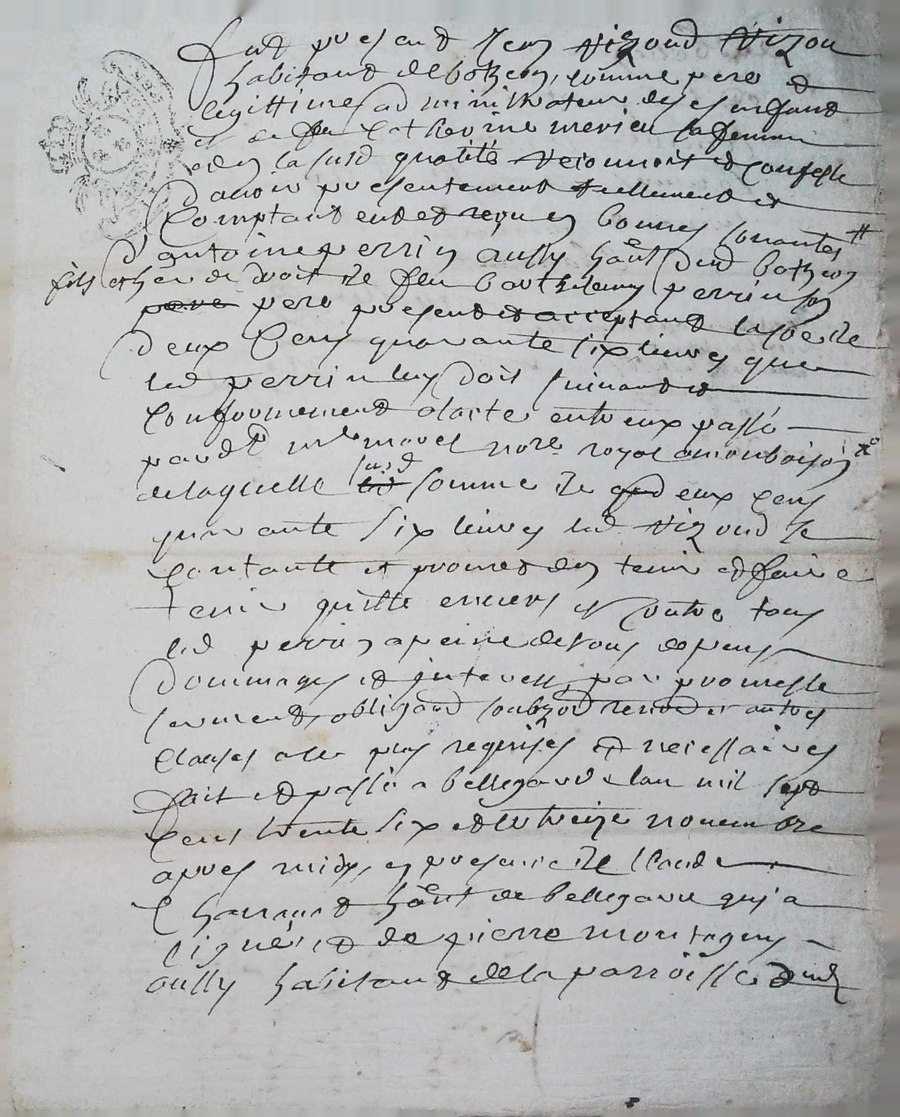 fut present Jean vizoud vizou
habitant de botheon, comme pere et
legittime administrateur de ses enfans
et de feu Catherine merieu sa femme
en la susd qualité reconnoit et confesse
d'avoir presentement reellement et
Comptant eu et reçu en bonnes sonantes
d'antoine perrin aussy hānt dud botheon
fils et her de droit de feu barthelemy perrin son
pere pere present et acceptant la soe de
deux Cens quarante six livres que
led perrin luy doit suivant et
conformement alacte entreux passé
pard me morel nore royal a monbrison
de laquelle susd somme de deux cens
quarante six livres led vizoud se
contante et promet den tenir et faire
tenir quitte envers et contre tous
led perrin a peine de tous depens
dommages et interests, par promesse
serment, obligaon soubzon renon et autres
clauses a ce plus requises et necessaires
fait et passé a bellegarde lan mil sept
cens trente six et le treize novembre
apres midy, en presence de Claude
hānt de bellegarde qui a
signé et de pierre montagny
aussy habitant de la parroisse dud